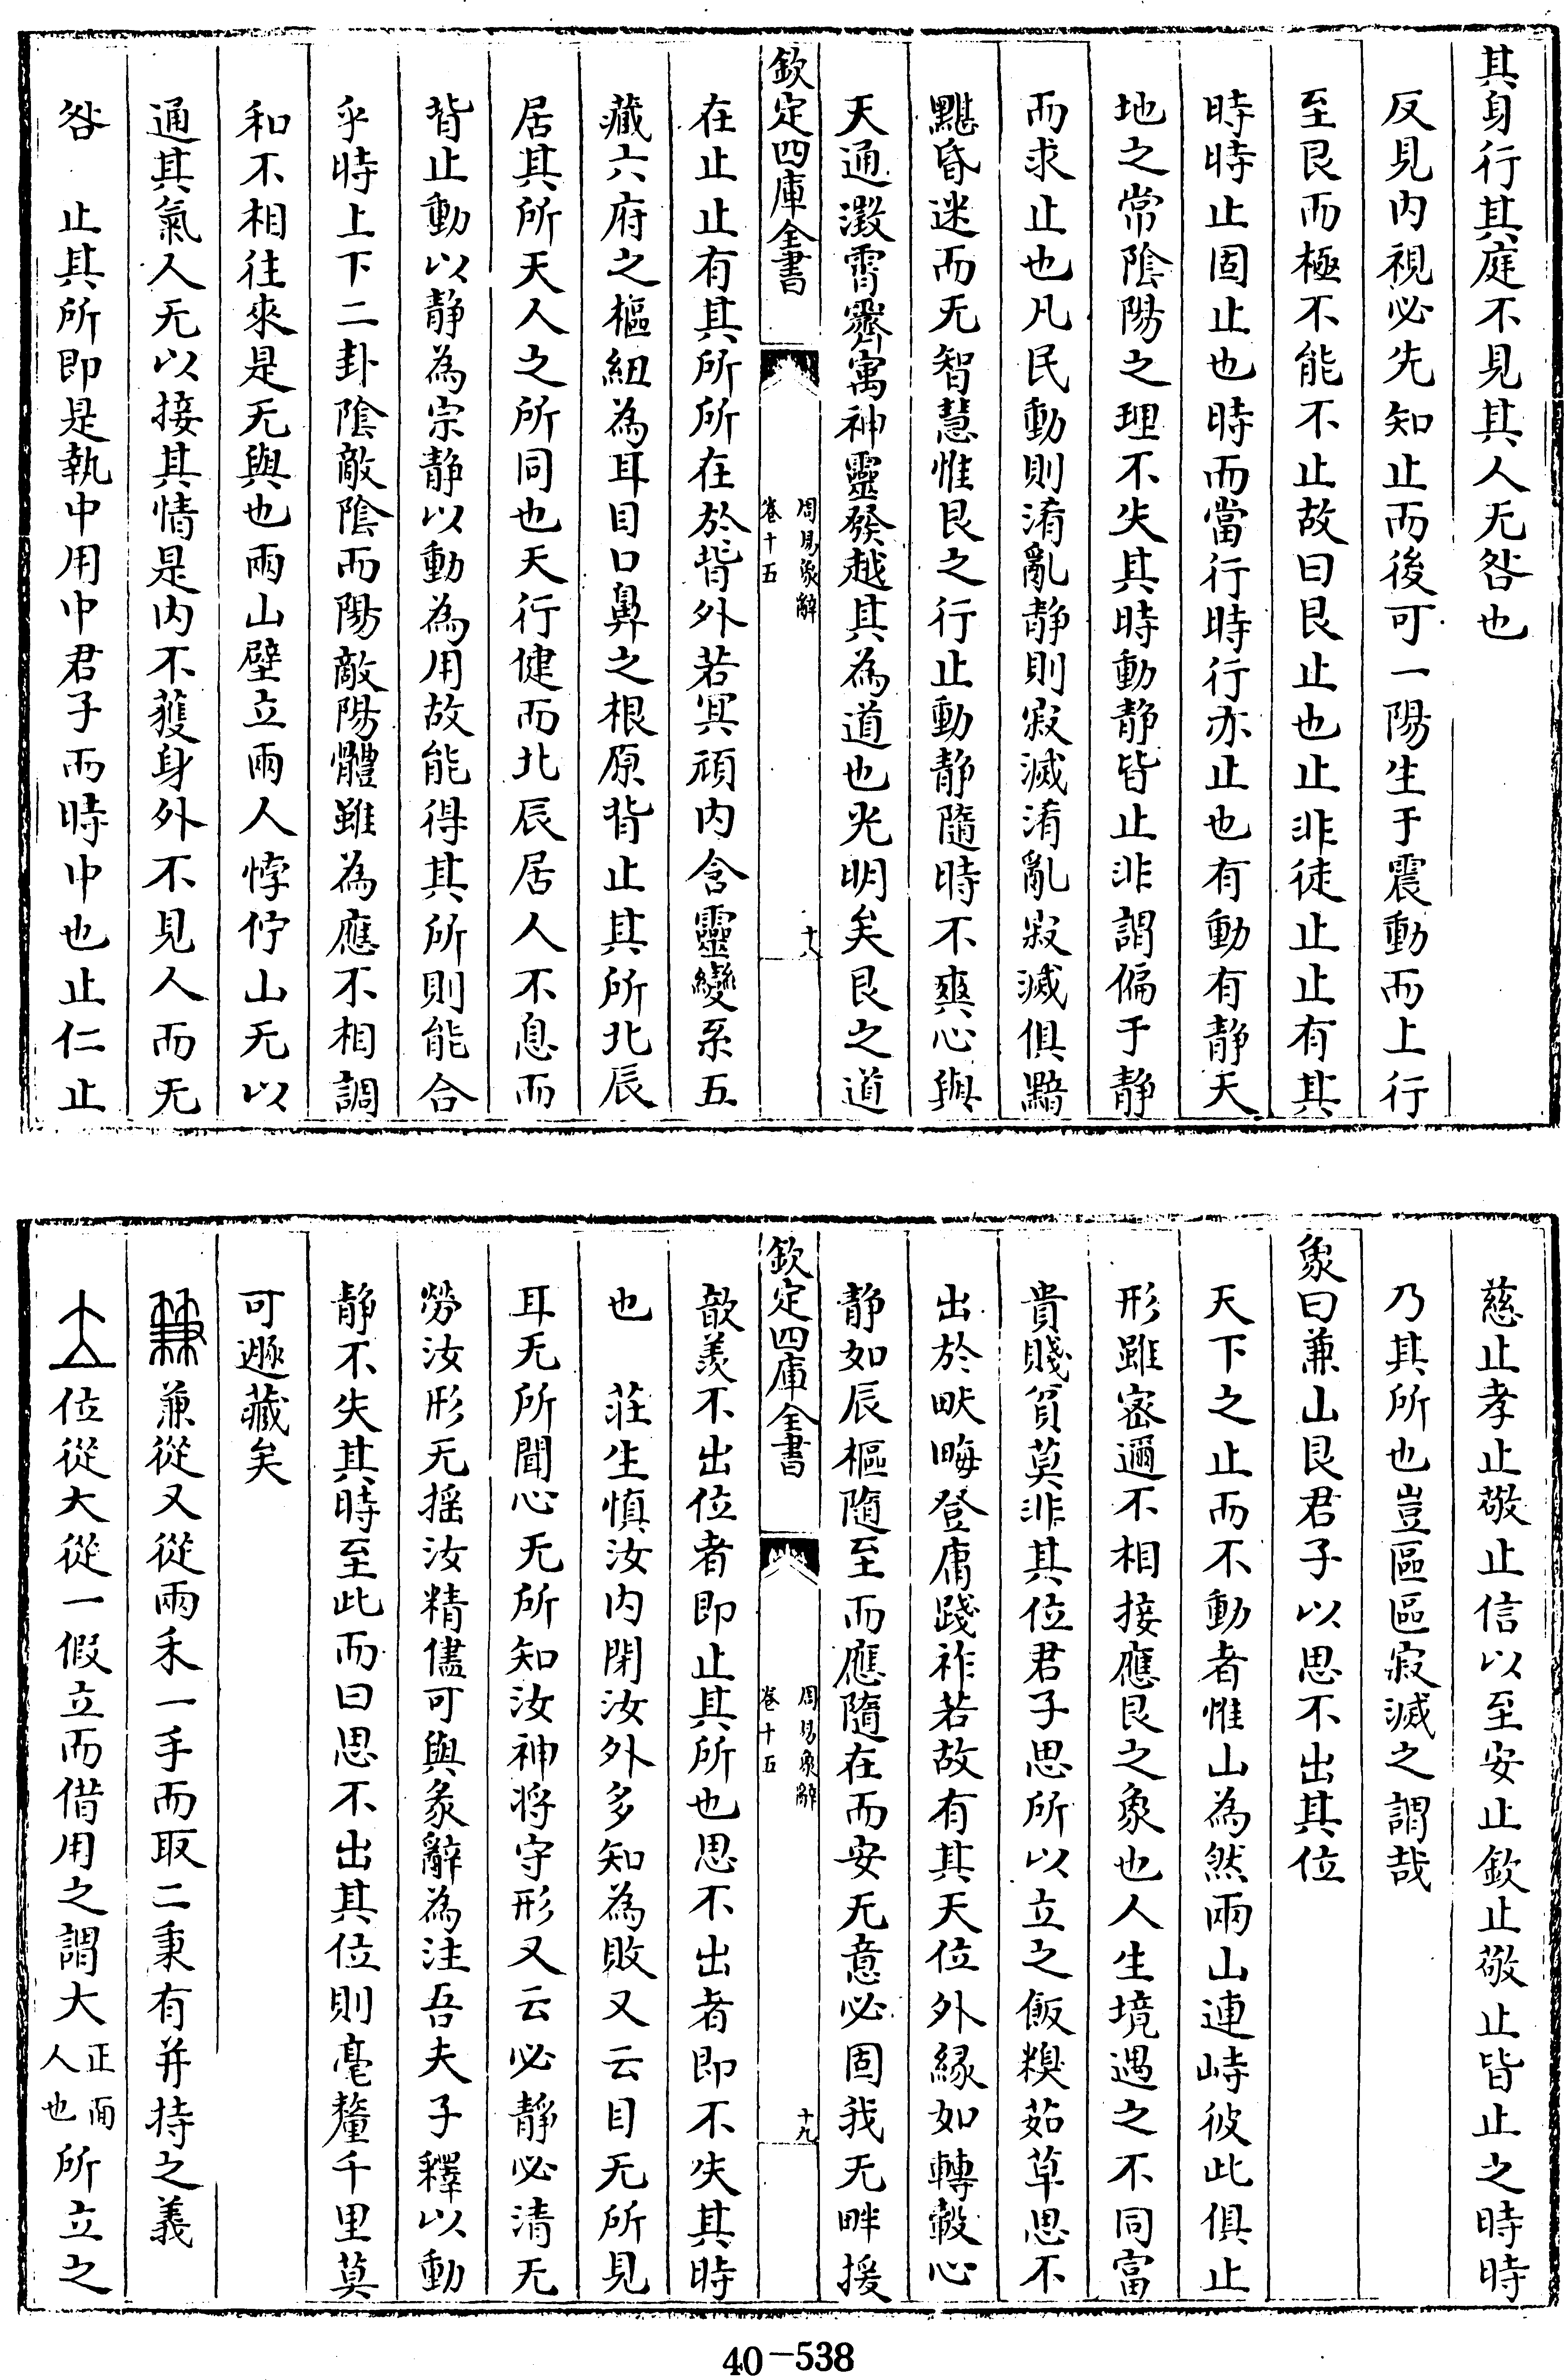 其身行其庭不見其人无咎也
反見内視必先知止而後可一陽生于震動而上行
至艮而極不能不止故曰艮止也止非徒止止有其
時時止固止也時而當行時行亦止也有動有静天
地之常陰陽之理不失其時動静皆止非謂偏于静
而求止也凡民動則淆亂静則寂滅淆亂寂滅俱黯
黮昏迷而无智慧惟艮之行止動静隨時不爽心與
天通澂霄霽寓神靈發越其為道也光明矣艮之道
欽定四庫全書
周易象辭
卷十五
十八
在止止有其所所在於背外若冥頑内含靈變系五
藏六府之樞紐為耳目口鼻之根原背止其所北辰
居其所天人之所同也天行健而北辰居人不息而
背止動以静為宗静以動為用故能得其所則能合
乎時上下二卦陰敵陰而陽敵陽體雖為應不相調
和不相往來是无與也兩山壁立兩人悖佇山无以
通其氣人无以接其情是内不䕶身外不見人而无
咎　止其所即是執中用中君子而時中也止仁止
慈止孝止敬止信以至安止欽止敬止皆止之時時
乃其所也豈區區寂滅之謂哉
象曰兼山艮君子以思不出其位
天下之止而不動者惟山為然兩山連峙彼此俱止
形雖密邇不相接應艮之象也人生境遇之不同富
貴賤貧莫非其位君子思所以立之飯糗茹草思不
出於畎畮登庸踐祚若故有其天位外緣如轉轂心
静如辰樞隨至而應隨在而安无意必固我无畔援
欽定四庫全書
周易象辭
卷十五
十九
歆羨不出位者即止其所也思不出者即不失其時
也　莊生慎汝内閉汝外多知為敗又云目无所見
耳无所聞心无所知汝神將守形又云必静必清无
勞汝形无搖汝精儘可與彖辭為注吾夫子釋以動
静不失其時至此而曰思不出其位則毫釐千里莫
可遯藏矣
兼從又從兩禾一手而取二秉有并持之義
位從大從一假立而借用之謂大正面人也所立之
40-538